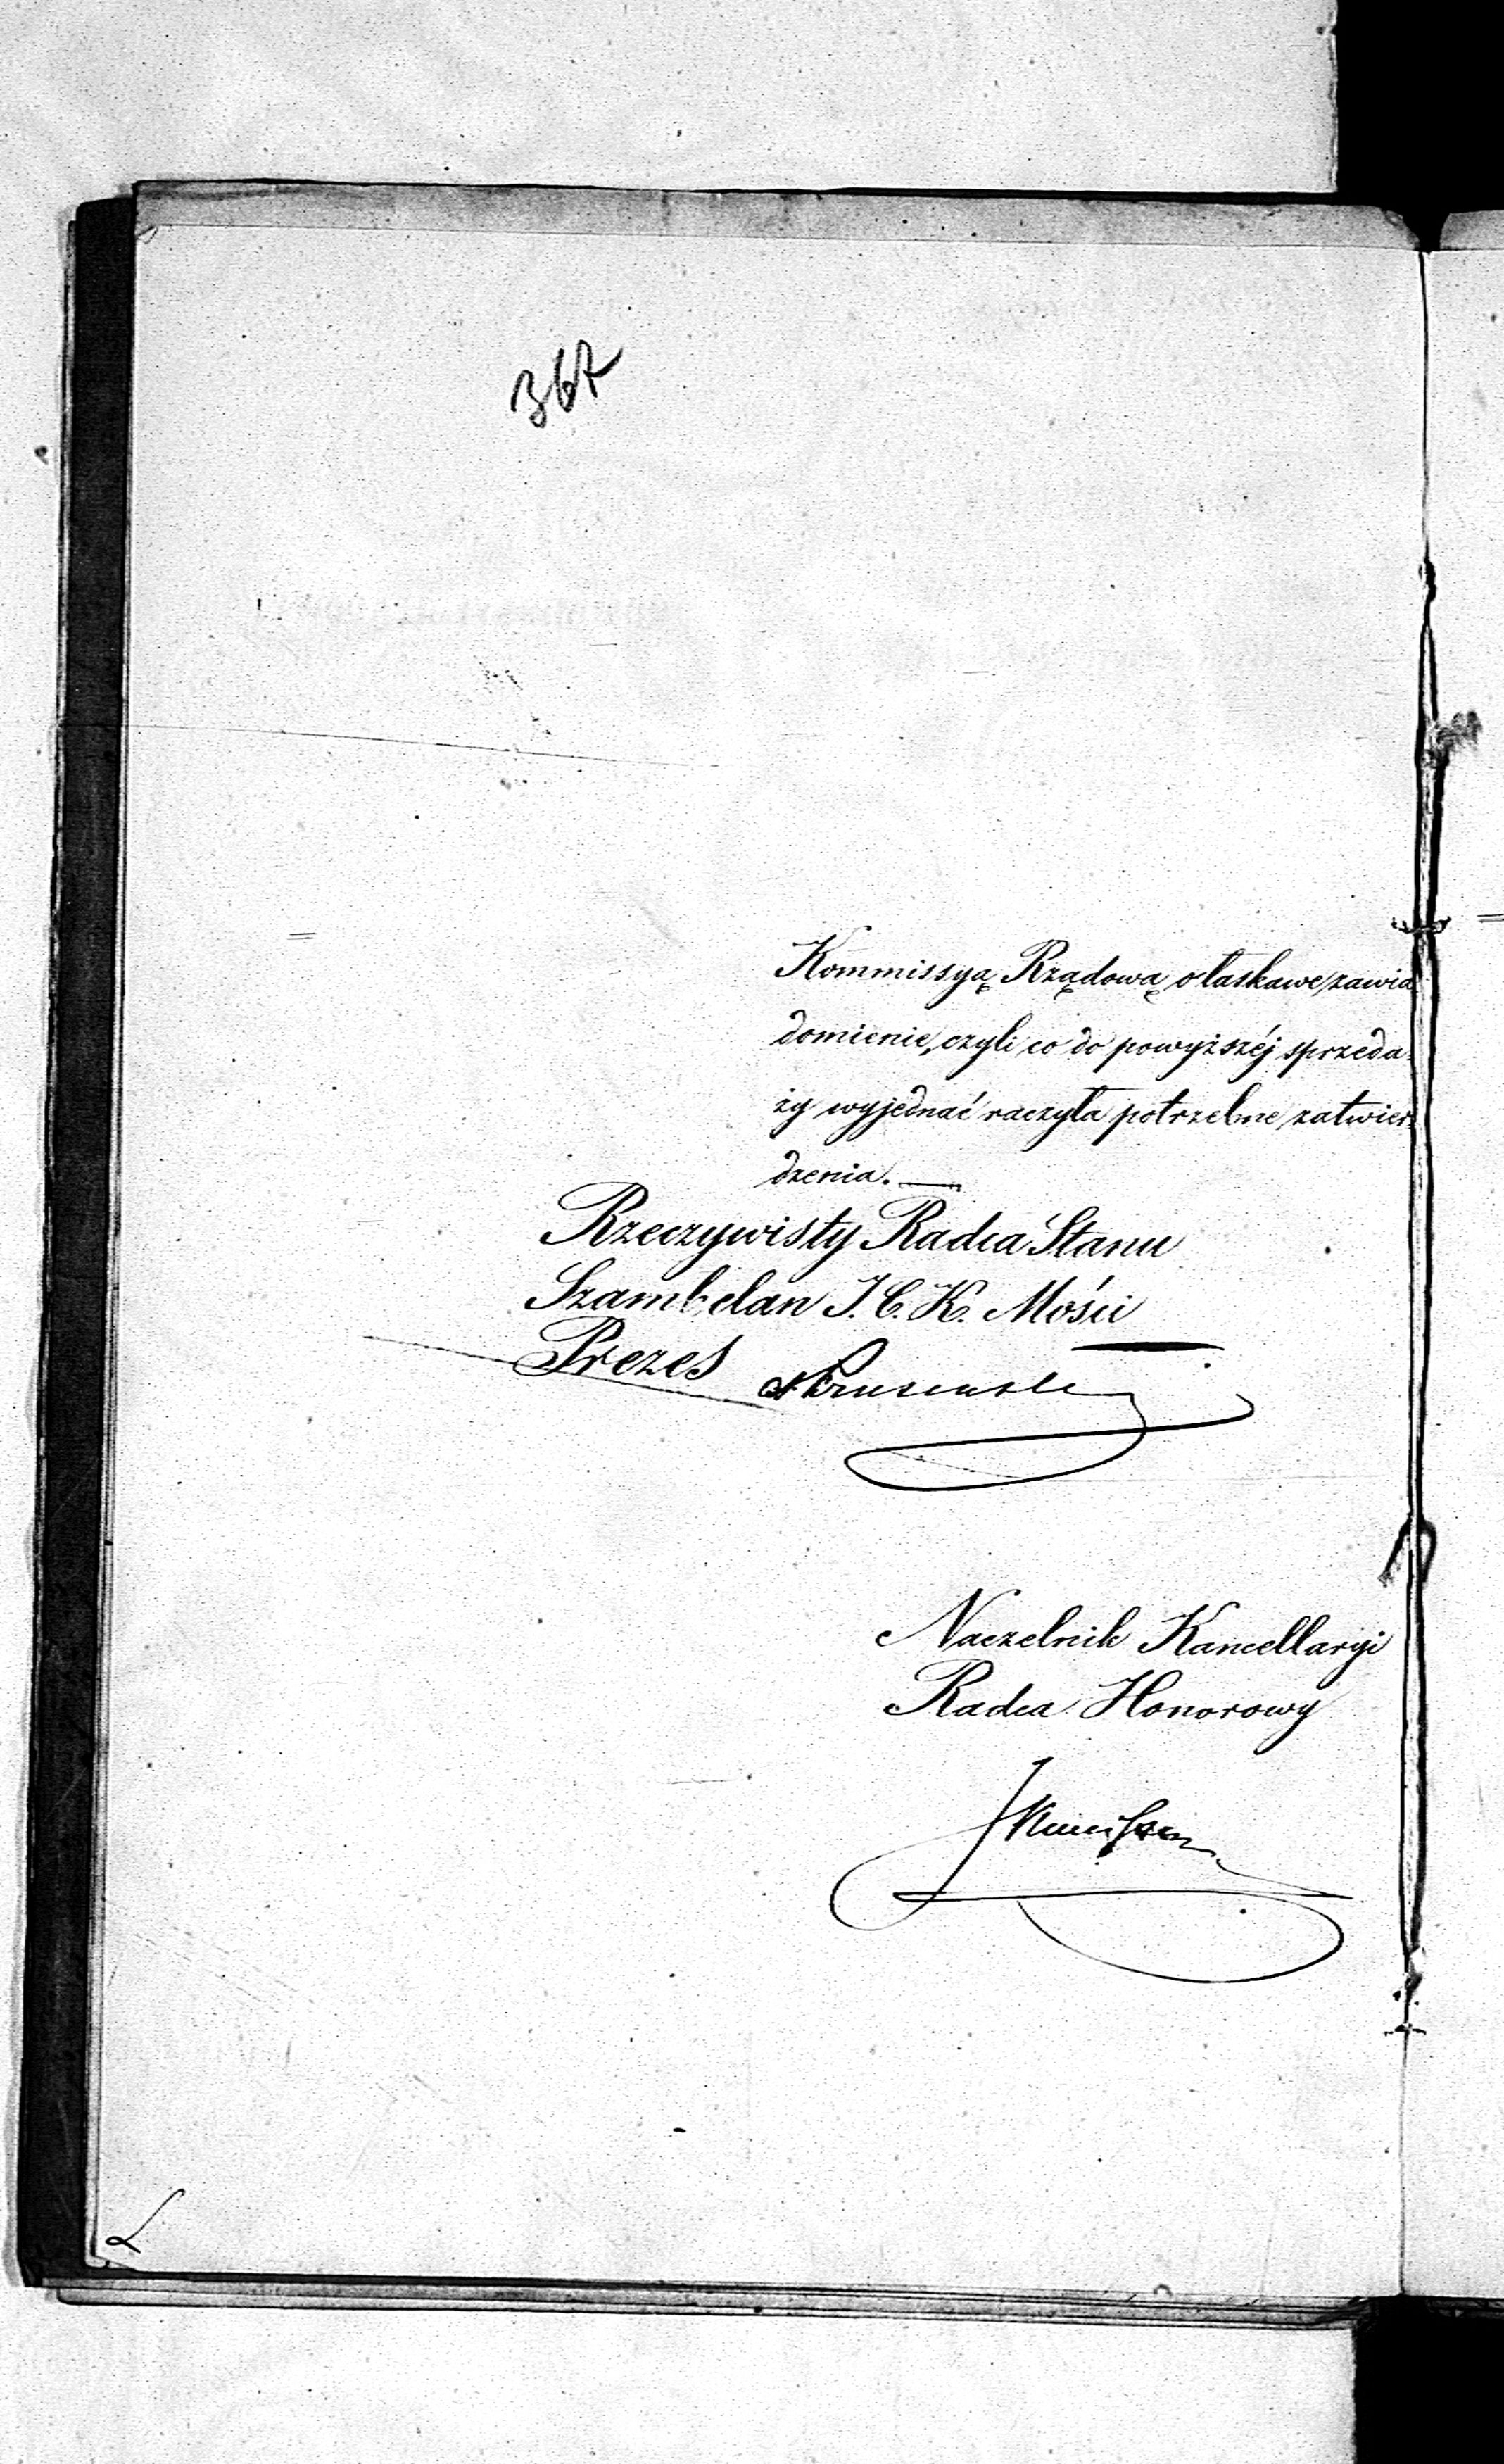 367
Kommissyą Rządową o łaskawe zawia
domienie, czyli co do powyższéj sprzeda-
ży wyjednać raczyła potrzebne zatwier-
dzenia. —
Rzeczywisty Radca Stanu
Szambelan J. C. K. Mości
Prezes
Naczelnik Kancellaryi
Radca Honorowy